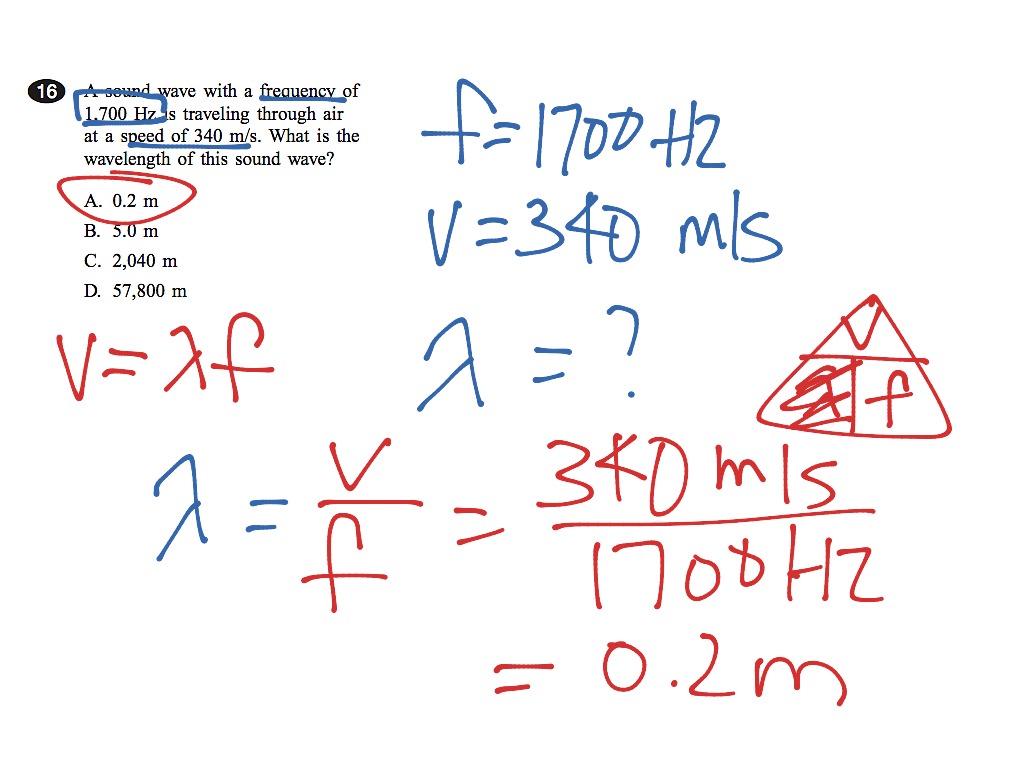 16 A sound wave with a frequency of
1,700 Hz is traveling through air
at a speed of 340 m/s. What is the
wavelength of this sound wave?
A. 0.2 m
B. 5.0 m
C. 2,040 m
D. 57,800 m
f = 1700 Hz
v = 340 m/s
λ = ?
v = λf
v
λ f
λ = v/f = 340 m/s / 1700 Hz
= 0.2 m